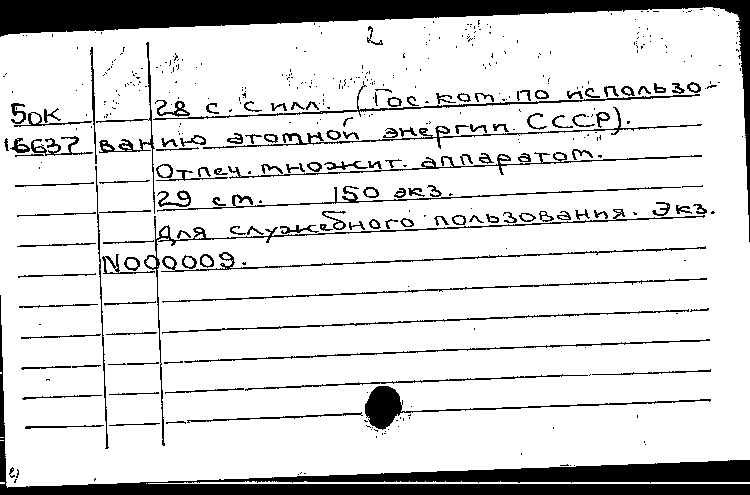 2
50к 28 с. с илл. (Гос. ком. по использо-
16637 ванию атомной энергии СССР).
Отпеч. множит. аппаратом.
29 см. 150 экз.
Для служебного пользования. Экз.
N000009.